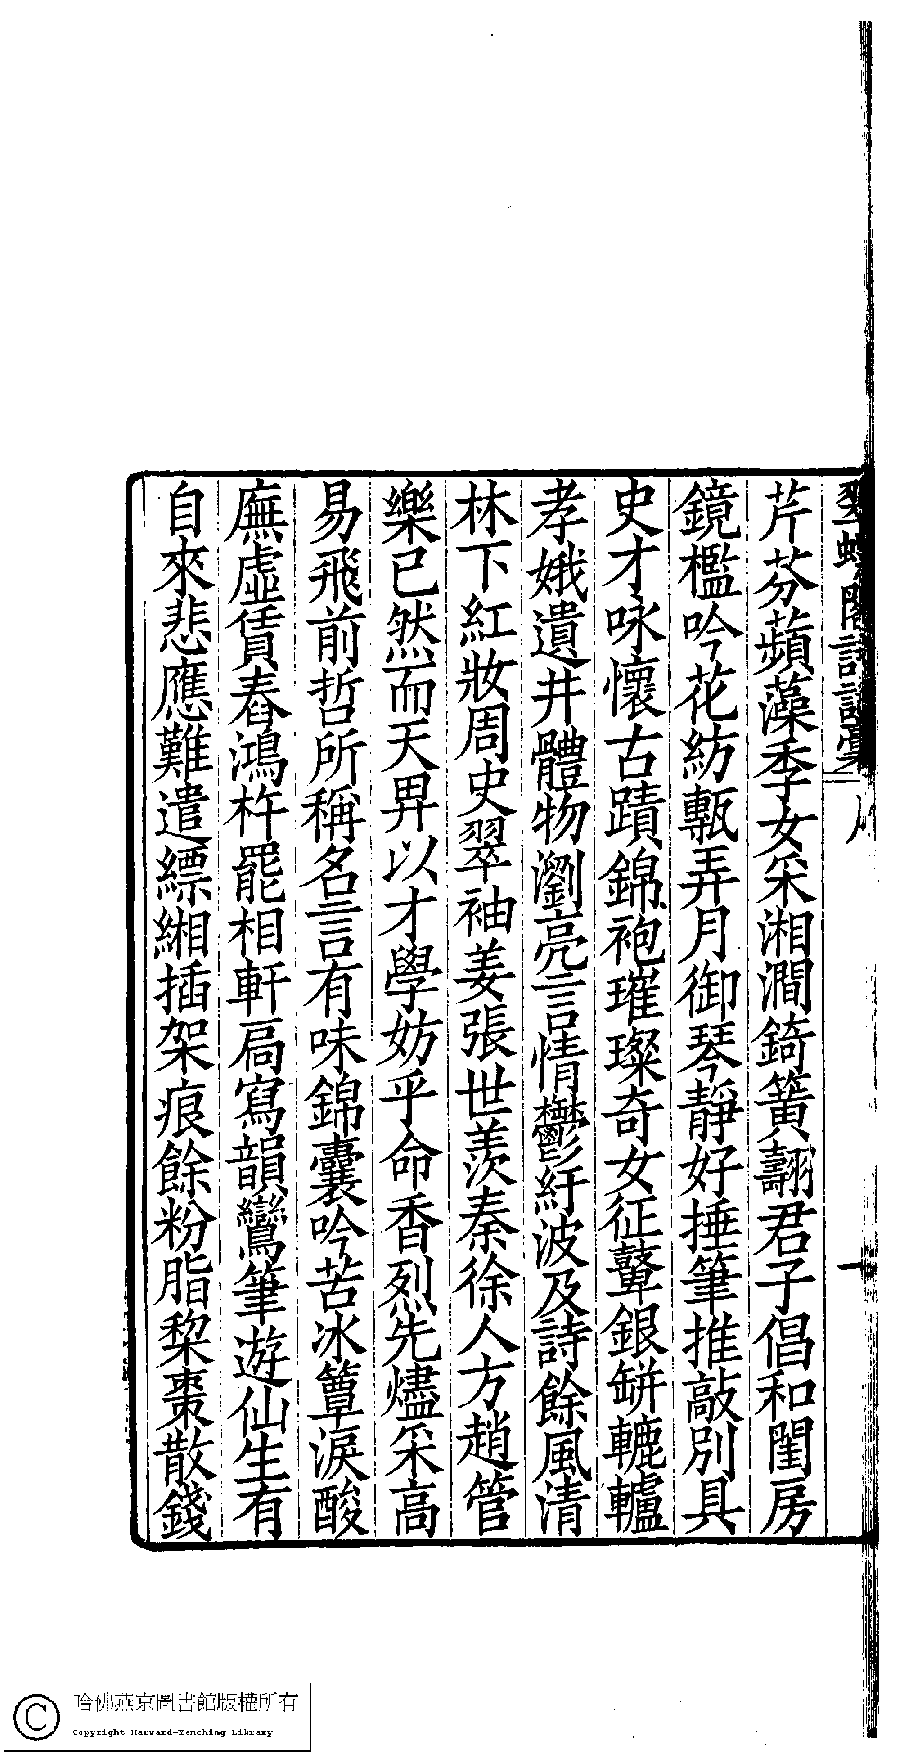 翠螺閣詩詞稾
芹芬蘋藻季女采湘澗錡簧翿君子倡和閨房
鏡檻吟花紡甎弄月御琴靜好捶筆推敲別具
史才咏懷古蹟錦袍璀璨奇女征鼙銀缾轆轤
孝娥遺井體物瀏亮言情鬱紆波及詩餘風清
林下紅妝周史翠袖姜張世羨秦徐人方趙管
樂已然而天畀以才學妨乎命香烈先燼采高
易飛前哲所稱名言有味錦囊吟苦冰簟淚酸
廡虛賃舂鴻杵罷相軒扃寫韻鸞筆遊仙生有
自來悲應難遣縹緗插架痕餘粉脂棃棗散錢
哈佛燕京圖書館版權所有
Copyright Harvard-Yenching Library